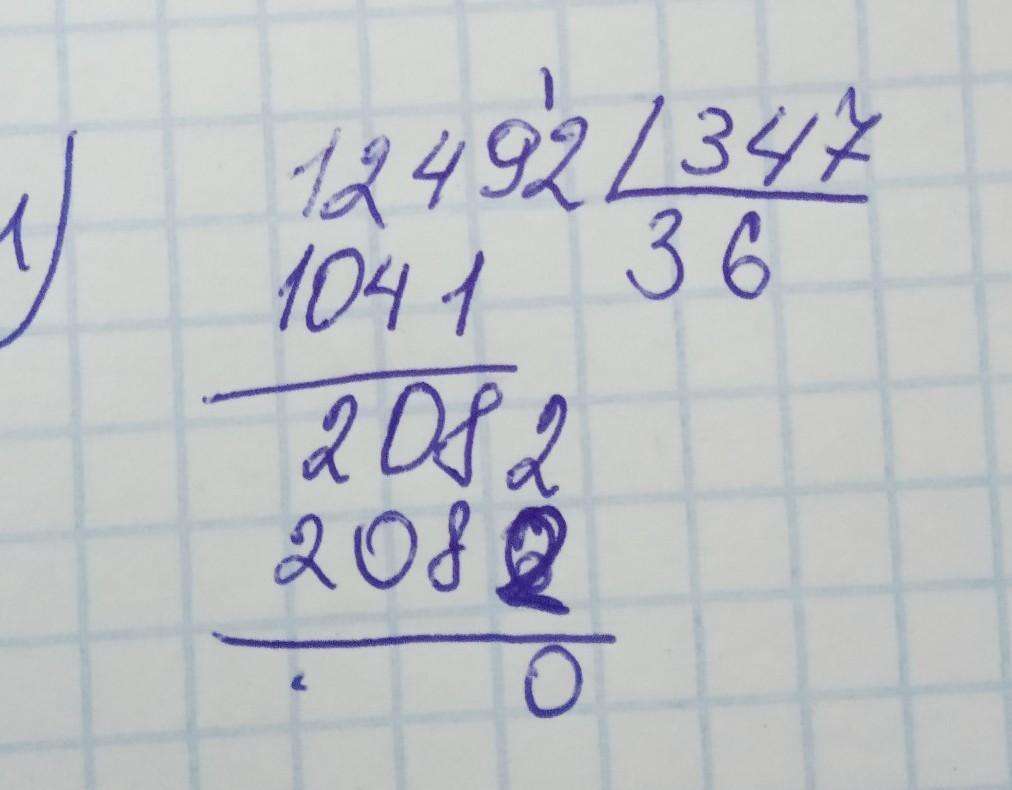 1)
12492 | 347
1041 36
2082
2082
0